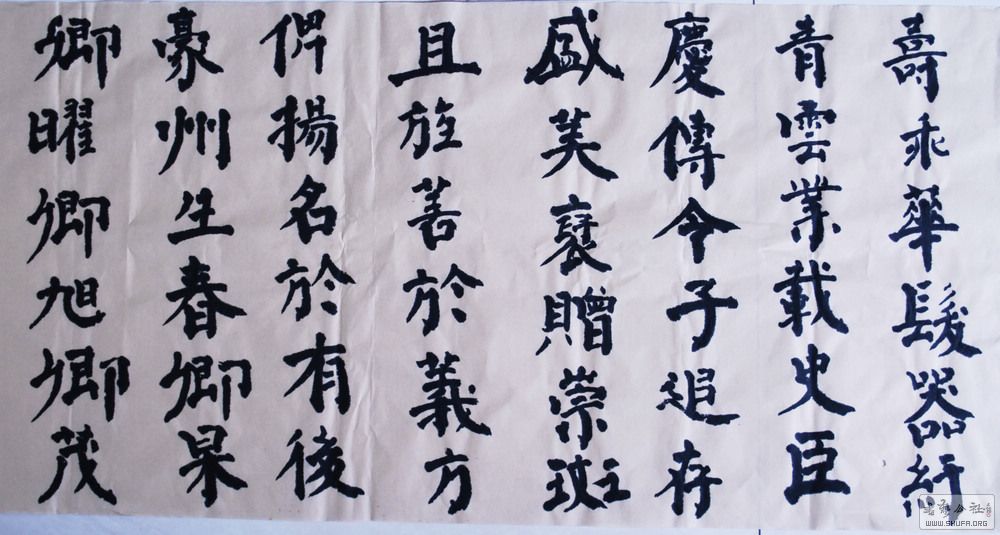 壽乖華髮器紆
青雲業載史臣
慶傳令子追存
盛美褒贈崇班
且旌善於義方
俾揚名於有後
豪州生春卿杲
卿曜卿旭卿茂
WWW.SHUFA.ORG